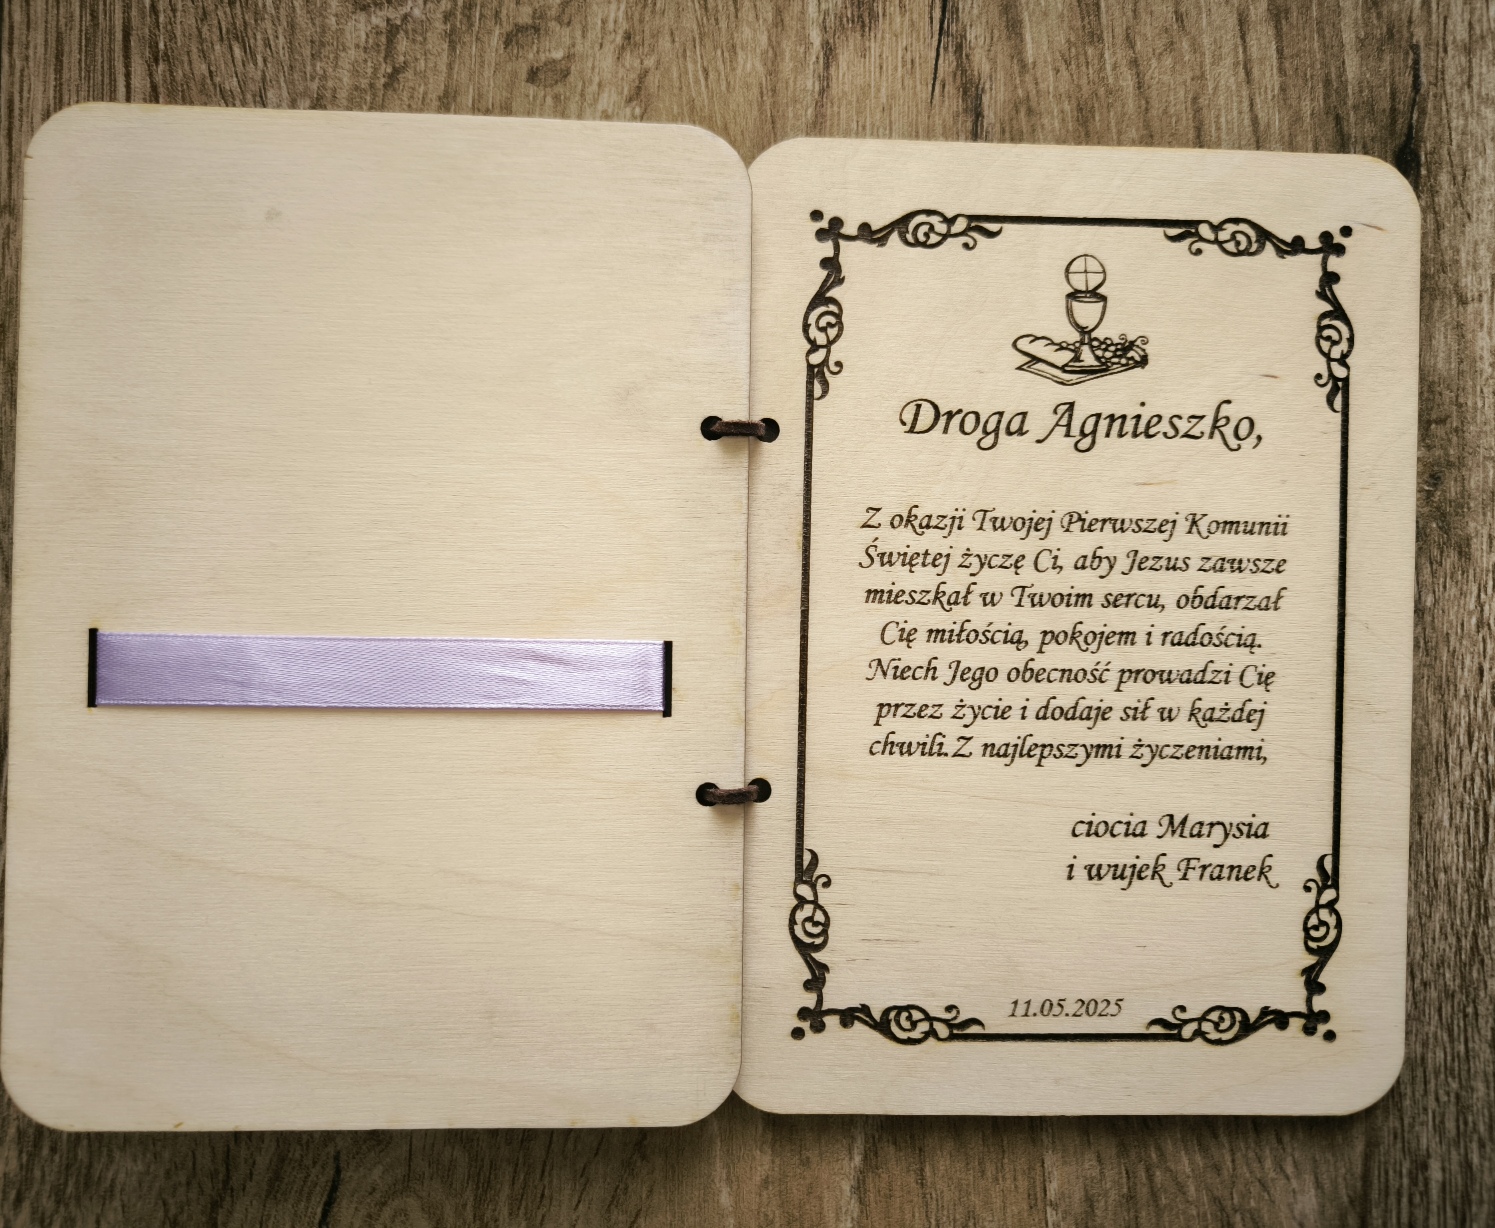 Droga Agnieszko,
Z okazji Twojej Pierwszej Komunii
Świętej życzę Ci, aby Jezus zawsze
mieszkał w Twoim sercu, obdarzał
Cię miłością, pokojem i radością.
Niech Jego obecność prowadzi Cię
przez życie i dodaje sił w każdej
chwili.Z najlepszymi życzeniami,
ciocia Marysia
i wujek Franek
11.05.2025